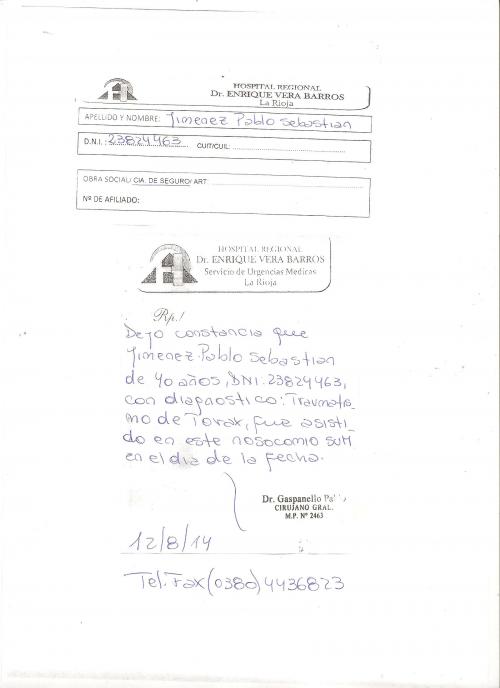 HOSPITAL REGIONAL
Dr. ENRIQUE VERA BARROS
La Rioja
APELLIDO Y NOMBRE: Jimenez Pablo Sebastian
D.N.I.: 23824463 CUIT/CUIL:
OBRA SOCIAL/ CIA. DE SEGURO/ ART
Nº DE AFILIADO:
HOSPITAL REGIONAL
Dr. ENRIQUE VERA BARROS
Servicio de Urgencias Medicas
La Rioja
Rp./
Dejo constancia que
Jimenez Pablo Sebastian
de 40 años, DNI: 23824463,
con diagnostico: Traumatis_
mo de Torax, fue asisti_
do en este nosocomio SUM
en el dia de la fecha.
Dr. Gaspanello
CIRUJANO GRAL.
M.P. Nº 2463
12/8/14
Tel. Fax (0380) 4436823